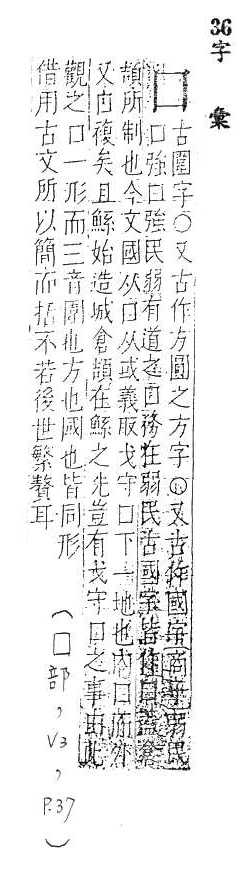 36字 彙
囗 古圍字〇又古作方圓之方字〇又古作國字商子弱民
囗強囗強民弱有道之囗務在弱民古國字皆作囗蓋倉
頡所制也今文國从囗从或義取戈守囗下一地也內囗而外
又囗複矣且鯀始造城倉頡在鯀之先豈有戈守囗之事由此
觀之囗一形而三音圍也方也國也皆同形
借用古文所以簡而括不若後世繁贅耳
(囗部,V3,P.37)